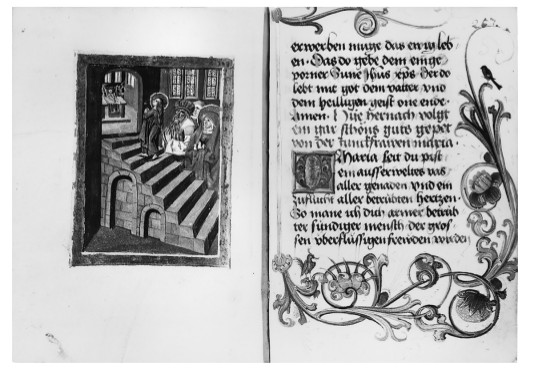 erwerben muge das ewig leb
en · Das do gebe dem einge
porner Sune Jhus xp̄s Der do
lebt mit got dem vatter vnd
dem heilligen geist one ende ·
Amen · Hye hernach volgt
ein gar schons guts gepet
von der Junckfrawen maria
O Maria seit du pist
ein ausserweltes vas
aller genaden vnd ein
zuflucht aller betrubten hertzen ·
So mane ich dich armer betrub
ter sundiger mensch der gros
sen vberflussigen frewden